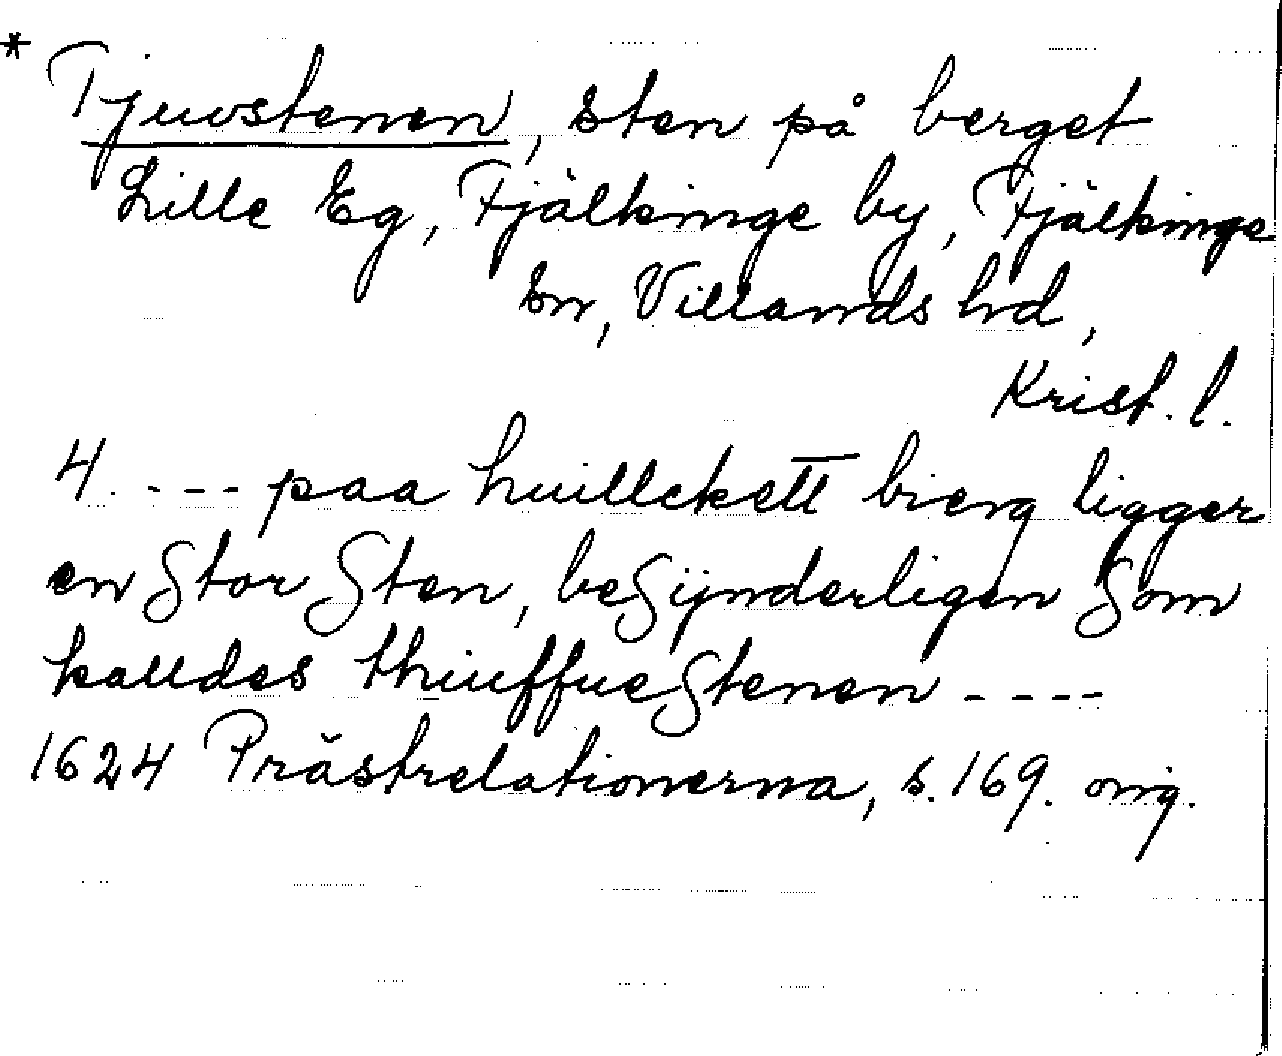 * Tjuvstenen, sten på berget
Lille Eg, Fjälkinge by, Fjälkinge
sn, Villands hd,
Krist. l.
4. --- paa huillckett bierg ligger
en Stor Sten, beSÿnderligen Som
kalldes thiuffueStenen ----
1624 Prästrelationerna, s. 169. orig.